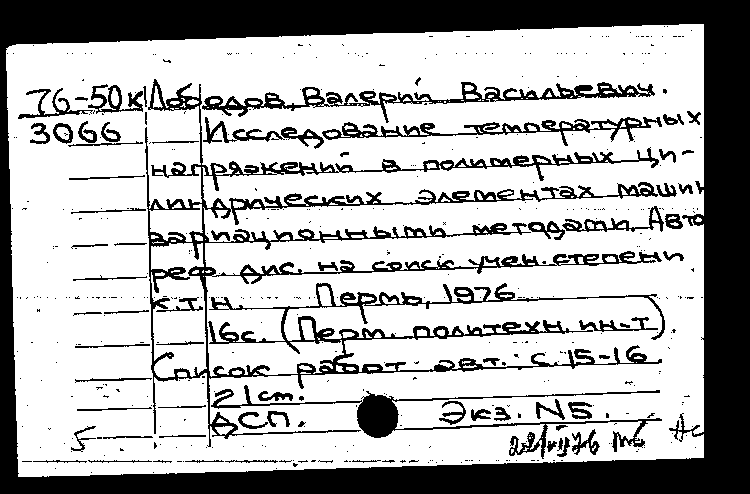 76-50к Лободов, Валерий Васильевич.
3066 Исследование температурных
напряжений в полимерных ци-
линдрических элементах машин
вариационными методами. Авто
реф. дис. на соиск учен. степени
к.т.н. Пермь, 1976
16с. (Перм. политехн. ин-т).
Список работ авт.: с. 15-16.
21см.
ДСП. Экз. N5.
5